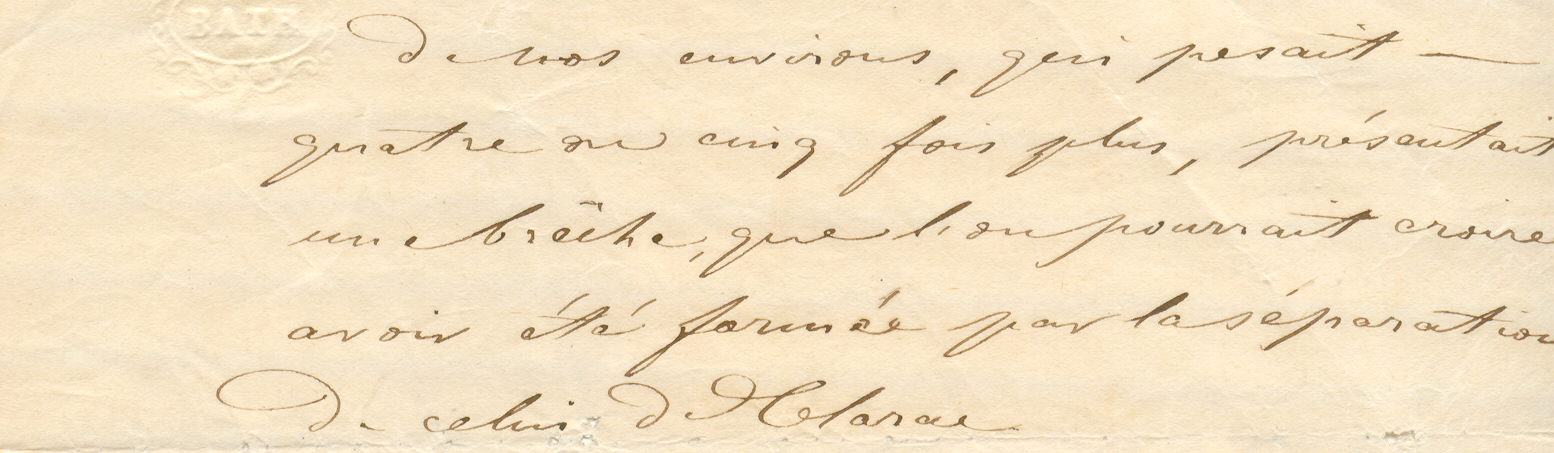 BATH
de nos environs, qui pesait —
quatre ou cinq fois plus, présentait
une brêche, que l'on pourrait croire
avoir été formée par la séparation
De celui